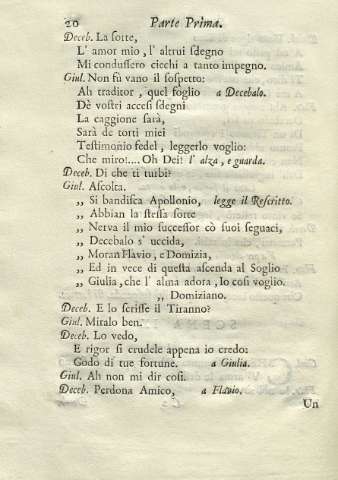 20 Parte Prima.
Deceb. La sorte,
L' amor mio, l' altrui sdegno
Mi condussero ciechi a tanto impegno.
Giul. Non fù vano il sospetto:
Ah traditor, quel foglio a Decebalo.
Dè vostri accesi sdegni
La caggione sarà,
Sarà de torti miei
Testimonio fedel, leggerlo voglio:
Che miro!.... Oh Dei! l' alza, e guarda.
Deceb. Di che ti turbi?
Giul. Ascolta.
„ Si bandisca Apollonio, legge il Rescritto.
„ Abbian la stessa sorte
„ Nerva il mio successor cò suoi seguaci,
„ Decebalo s' uccida,
„ Moran Flavio, e Domizia,
„ Ed in vece di questa ascenda al Soglio
„ Giulia, che l' alma adora, lo così voglio.
„ Domiziano.
Deceb. E lo scrisse il Tiranno?
Giul. Miralo ben.
Deceb. Lo vedo,
E rigor sì crudele appena io credo:
Godo di tue fortune. a Giulia.
Giul. Ah non mi dir così.
Deceb. Perdona Amico, a Flavio.
Un